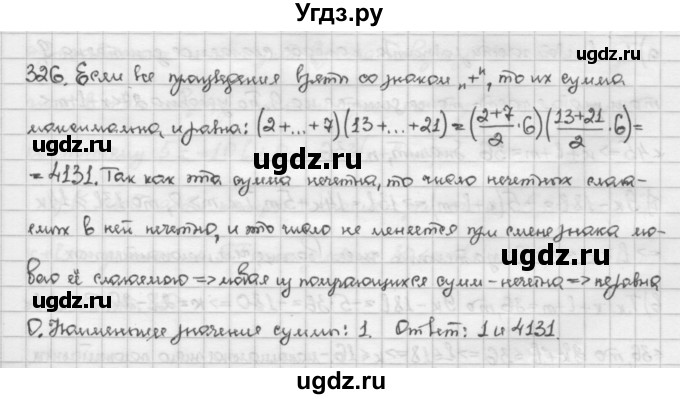 Угдз.ру
326. Если все произведения взять со знаком „+“, то их сумма
максимальна, и равна: (2+...+7)(13+...+21)=(2+7/2·6)(13+21/2·6)=
=4131. Так как эта сумма нечетна, то число нечетных слага-
емых в ней нечетно, и это число не меняется при смене знака лю-
бого её слагаемого => любая из получающихся сумм - нечетна => не равна
0. Наименьшее значение суммы: 1. Ответ: 1 и 4131.
uqdz.ru
uqdz.ru
uqdz.ru
uqdz.ru
uqdz.ru
uqdz.ru
uqdz.ru